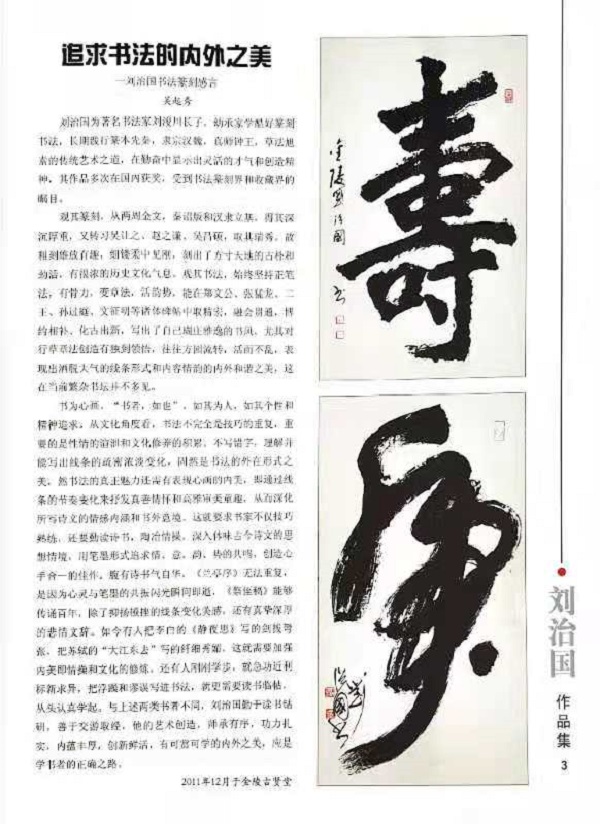 追求书法的内外之美
—刘治国书法篆刻感言
吴超秀
刘治国为著名书法家刘浚川长子，幼承家学酷好篆刻
书法，长期践行篆本先秦，隶宗汉魏，真师钟王，草法旭
素的传统艺术之道，在勤奋中显示出灵活的才气和创造精
神。其作品多次在国内获奖，受到书法篆刻界和收藏界的
瞩目。
观其篆刻，从两周金文，秦诏版和汉隶立基，得其深
沉厚重，又转习吴让之、赵之谦、吴昌硕，取其瑞秀，故
粗刻雄放有趣，细镂柔中见刚，刻出了方寸天地的古朴和
劲洁，有很浓的历史文化气息。观其书法，始终坚持正笔
法，有骨力，变草法，活韵协，能在郑文公、张猛龙、二
王、孙过庭、文征明等诸体碑帖中取精宏，融会贯通，博
约相补，化古出新，写出了自己端庄雅逸的书风。尤其对
行草章法创造有独到领悟，往往方回流转，活而不乱，表
现出洒脱大气的线条形式和内容情韵的内外和谐之美，这
在当前繁杂书坛并不多见。
书为心画，“书者，如也”，如其为人，如其个性和
精神追求。从文化角度看，书法不完全是技巧的重复，重
要的是性情的涵泅和文化修养的积累，不写错字，理解并
能写出线条的疏密浓淡变化，固然是书法的外在形式之
美，然书法的真正魅力还需有表现心画的内美，即通过线
条的节奏变化来抒发真善情怀和高雅审美童趣，从而深化
所写诗文的情感内涵和书外意境。这就要求书家不仅技巧
熟练，还要勤读诗书，陶冶情操，深入体味古今诗文的思
想情境，用笔墨形式追求情、意、韵、势的共鸣，创造心
手合一的佳作，腹有诗书气自华。《兰亭序》无法重复，
是因为心灵与笔墨的共振闪光瞬间即逝，《祭侄稿》能够
传诵百年，除了抑扬顿挫的线条变化美感，还有真挚深厚
的悲情文辞。如今有人把李白的《静夜思》写的剑拔弩
张，把苏轼的“大江东去”写的纤细秀媚，这就需要加强
内美即情操和文化的修炼。还有人刚刚学步，就急功近利
标新求异，把浮躁和谬误写进书法，就更需要读书临帖，
从头认真学起。与上述两类书者不同，刘治国勤于读书钻
研，善于交游取经，他的艺术创造，师承有序，功力扎
实，内蕴丰厚，创新鲜活，有可需可学的内外之美，应是
学书者的正确之路。
2011年12月于金陵古贤堂
壽
金陵 治國 书
虎
刘治國书
刘治国
作品集
3